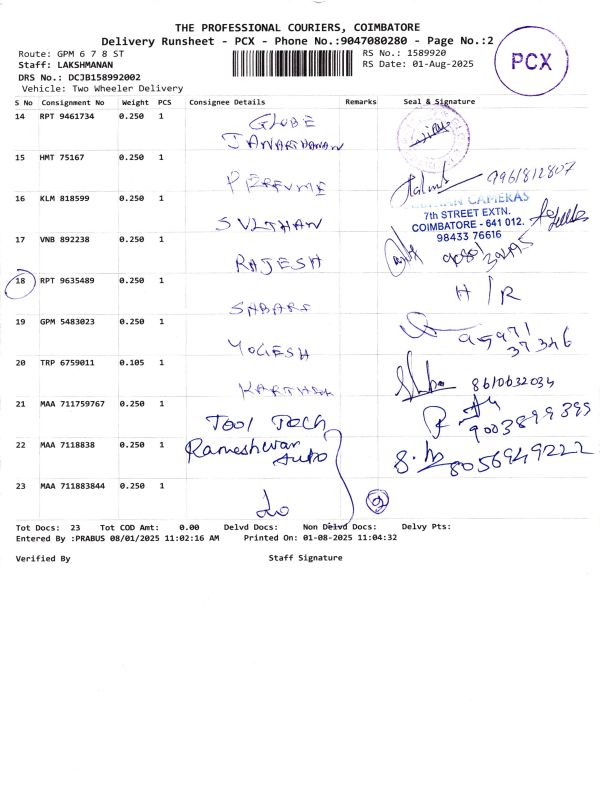 THE PROFESSIONAL COURIERS, COIMBATORE
Delivery Runsheet - PCX - Phone No.:9047080280 - Page No.:2
Route: GPM 6 7 8 ST RS No.: 1589920
Staff: LAKSHMANAN RS Date: 01-Aug-2025
DRS No.: DCJB158992002
Vehicle: Two Wheeler Delivery
PCX
S No Consignment No Weight PCS Consignee Details Remarks Seal & Signature
14 RPT 9461734 0.250 1 GLOBE
JANARTHANAN
15 HMT 75167 0.250 1
PERFUME 9961812807
16 KLM 818599 0.250 1 CAMERAS
7th STREET EXTN.
SULTHAN COIMBATORE - 641 012.
17 VNB 892238 0.250 1 98433 76616
RAJESH
18 RPT 9635489 0.250 1 H/R
SHBARI
19 GPM 5483023 0.250 1 95971
YOGESH 37346
20 TRP 6759011 0.105 1
8610632034
21 MAA 711759767 0.250 1
Tool Tech 9003899399
22 MAA 7118838 0.250 1 Rameshwar
Auto 8056949222
23 MAA 711883844 0.250 1
Do
Tot Docs: 23 Tot COD Amt: 0.00 Delvd Docs: Non Delvd Docs: Delvy Pts:
Entered By :PRABUS 08/01/2025 11:02:16 AM Printed On: 01-08-2025 11:04:32
Verified By Staff Signature